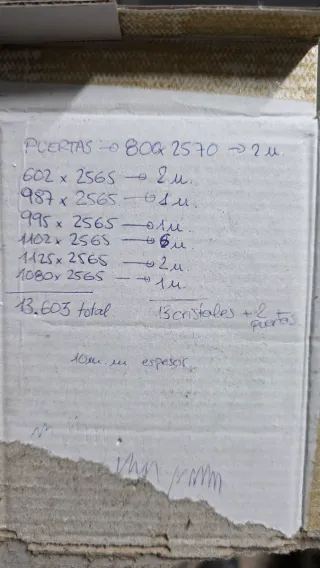 PUERTAS → 800x2570 → 2 u.
602 x 2565 → 2 u.
987 x 2565 → 1 u.
995 x 2565 → 1 u.
1102 x 2565 → 6 u
1125 x 2565 → 2 u.
1080 x 2565 → 1 u.
13.603 total 13 cristales + 2 puertas
10 m.m espesor.